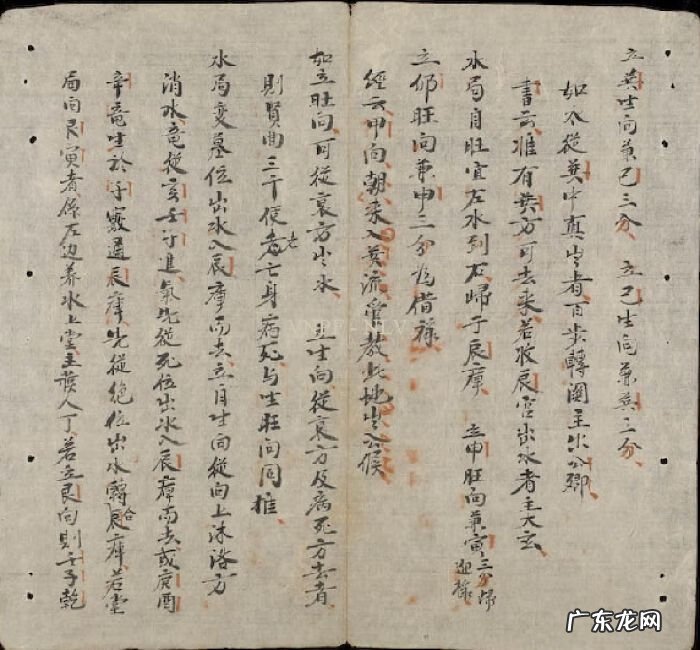 立巽生向兼巳三分 立巳生向兼巽三分
如不从巽中真出者百步轉闌主出公卿
書云惟有巽方可去來若收辰宮出水者主大玄
水局自旺宜左水到右歸于辰庫 立申旺向兼寅三分歸迎祿
立仰旺向兼申二分為借祿
經云甲向朝來入巽流管教此地出公侯
如立旺向可從衰方出水 立生向從衰方及病死方去者
則賢曲三十便老亡身病死与生旺向同推
水局变墓位出水入辰庫而去立自生向從向上沐浴方
消水竜從亥壬子進氣先從死位出水入辰庫而去或庚酉
辛竜生於子竅通辰庫先從絶位出水轉辰庫若堂
局向艮寅者係左边养水上堂主發人丁若立艮向則壬子乾
广东龙网